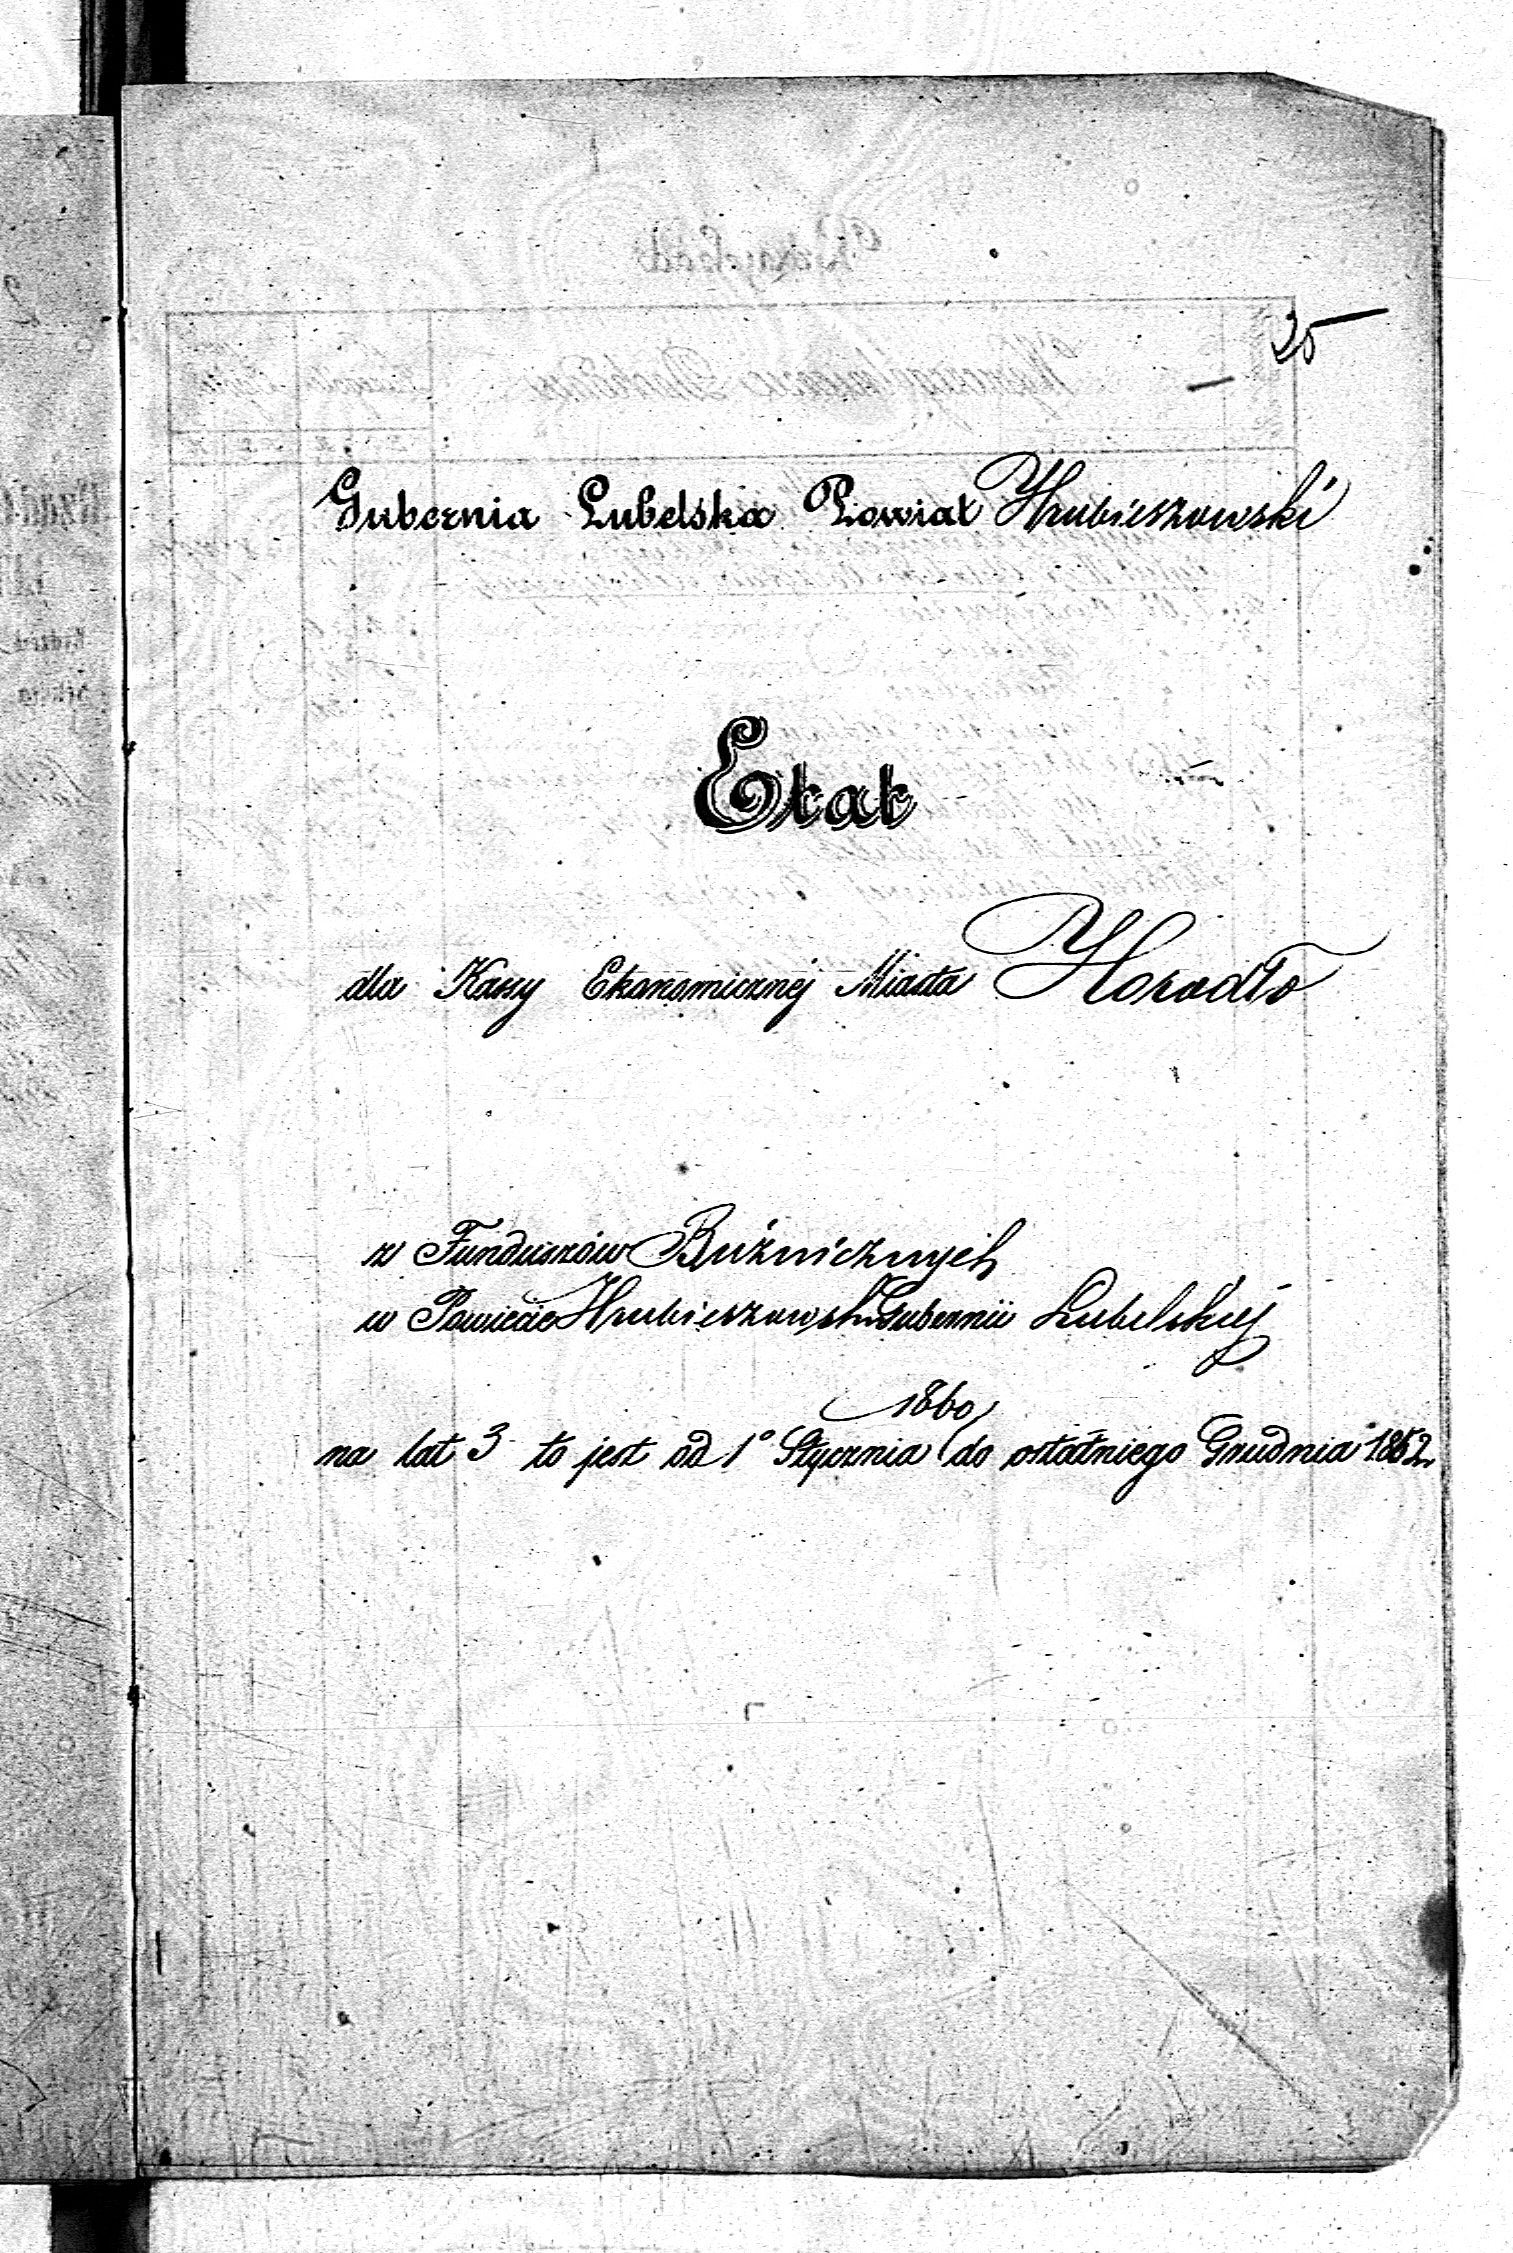 25
Gubernia Lubelska Powiat Hrubieszowski
Etat
dla Kassy Ekonomicznéj Miasta Horodło
z Funduszów Bużnicznych
w Powiecie Hrubieszowski Gubernii Lubelskiej
1860
na lat 3 to jest od 1º Stycznia do ostatniego Grudnia 1862